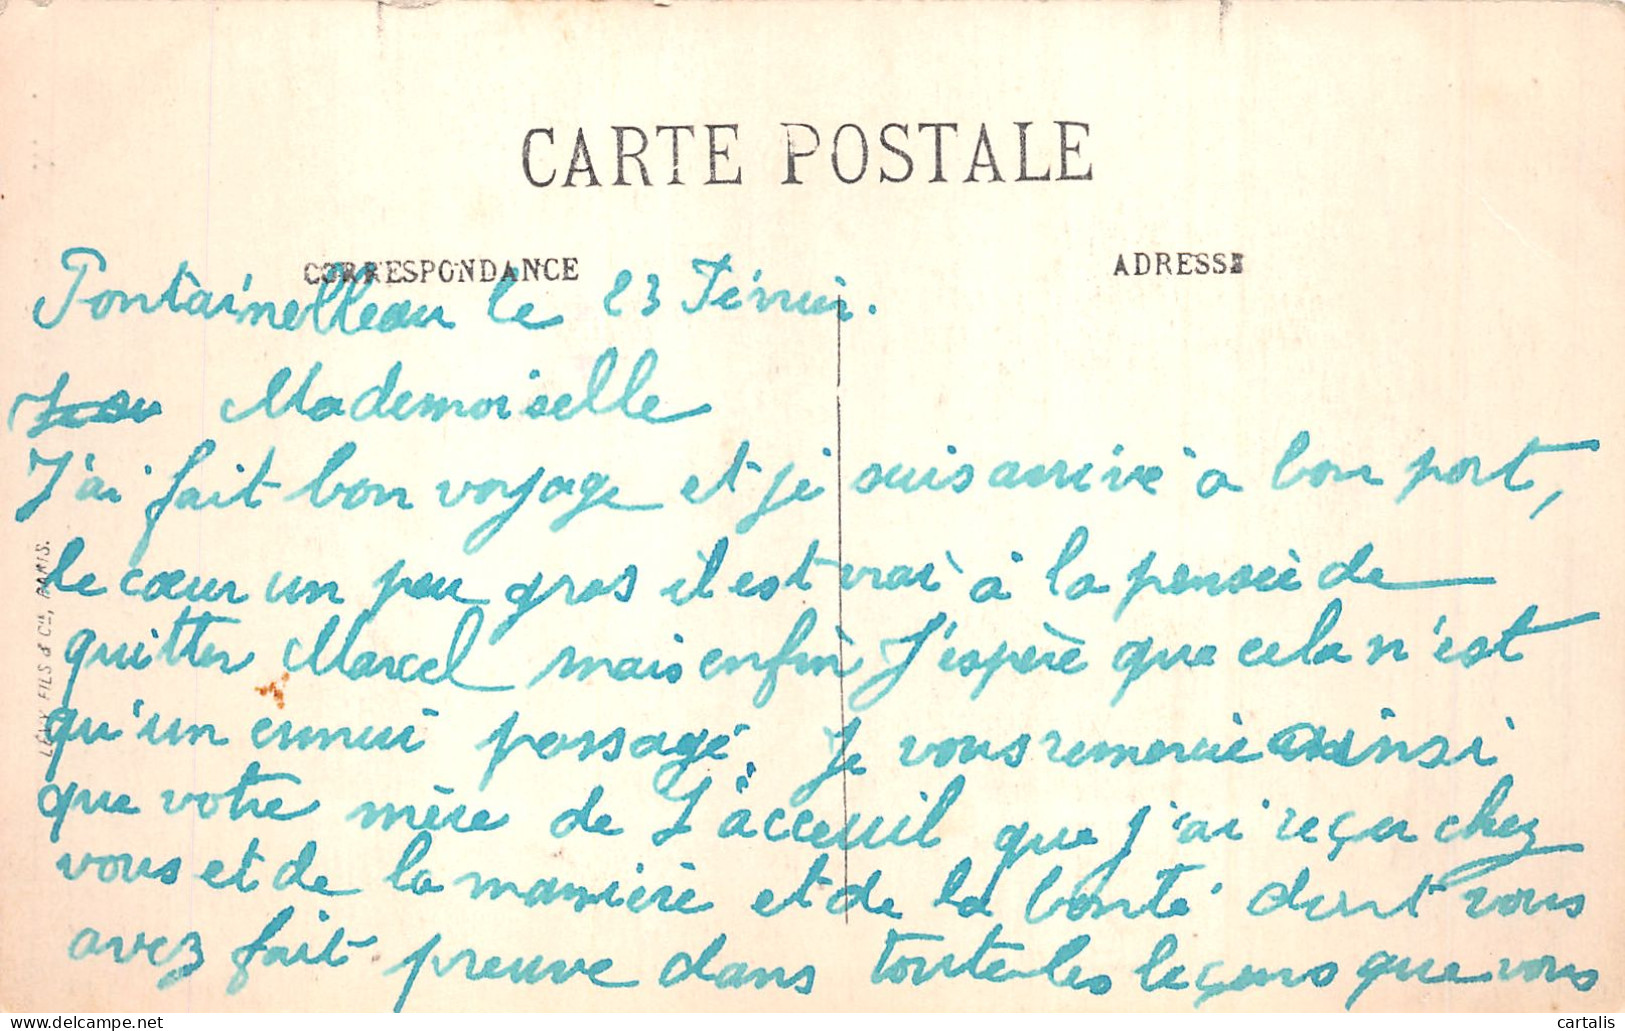 CARTE POSTALE
CORRESPONDANCE
ADRESSE
Fontainebleau le 23 Février.
Mademoiselle
J'ai fait bon voyage et je suis arrivé à bon port,
le cœur un peu gros il est vrai à la pensée de
quitter Marcel mais enfin J'espère que cela n'est
qu'un ennui passagé. Je vous remercie ainsi
que votre mère de L'acceuil que j'ai reçu chez
vous et de la manière et de la bonté dont vous
avez fait preuve dans toute les leçons que vous
LÉVY FILS & Cie, PARIS.
cartalis